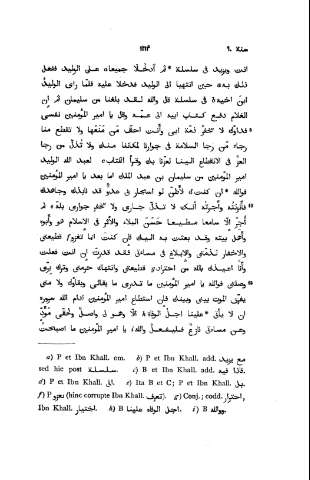 سنة ٩٠ ١٢١٣
انت ويزيد فى سلسلة ثم ادخلا جميعا على الوليد ففعل
ذلك به حين انتهيا الى الوليد فدخلا عليه فلما راى الوليد
ابن اخيه فى سلسلة قال والله لقد بلغنا من سليمان ثم ان
الغلام دفع كتاب ابيه الى عمه وقال يا امير المؤمنين نفسى
فداوك لا تخفر ذمة ابى وأنت احق من منعها ولا تقطع منا
رجاء من رجا السلامة فى جوارنا لمكاننا منك ولا تذل من رجا
العز فى الانقطاع الينا لعزنا بك وقرأ الكتاب لعبد الله الوليد
امير المؤمنين من سليمان بن عبد الملك اما بعد يا امير المؤمنين
فوالله ان كنت لأظن لو استجار بى عدو قد نابذك وجاهدك
فأنزلته وأجرته أنك لا تذل جارى ولا تخفر جوارى بله لم
أجر الا سامعا مطيعا حسن البلاء والأثر فى الاسلام هو وأبوه
وأهل بيته وقد بعثت به اليك فإن كنت انما تغزو قطيعتى
والاخفار لذمتى والإبلاغ فى مساءتى فقد قدرت إن انت فعلت
وأنا اعيذك بالله من احتراد قطيعتى وانتهاك حرمتى وترك برى
وصلتى فوالله يا امير المؤمنين ما تدرى ما بقائى وبقاوك ولا متى
يفرق الموت بينى وبينك فإن استطاع امير المؤمنين ادام الله سروره
ان لا يأتى علينا اجل الوفاة الا وهو لى واصل ولحقى مؤد
وعن مساءتى نازع فليفعل والله يا امير المؤمنين ما اصبحت
a) P et Ibn Khall. om. b) P et Ibn Khall. add. مع يزيد
sed hic post سلسلة. c) B et Ibn Khall. add. فاذا فيه.
d) P et Ibn Khall. انى. e) Ita B et C; P et Ibn Khall. بل.
f) P نعزو (hinc corrupte Ibn Khall. تعرف). g) Conj.; codd. احتراز,
Ibn Khall. اختيار. h) B اجل الوفاة علينا. i) B فوالله.